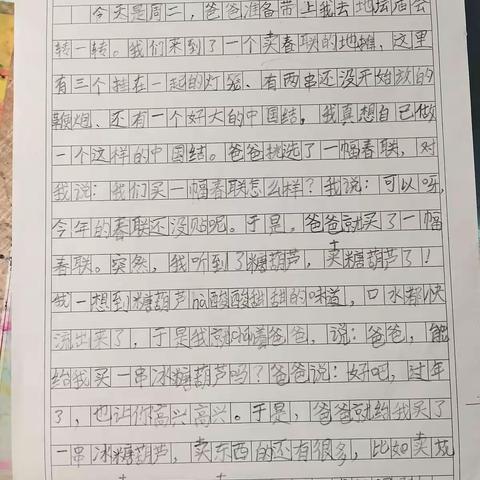 今天是周二，爸爸准备带上我去地坛庙会
转一转。我们来到了一个卖春联的地摊，这里
有三个挂在一起的灯笼、有两串还没开始放的
鞭炮、还有一个好大的中国结，我真想自己做
一个这样的中国结。爸爸挑选了一幅春联，对
我说：我们买一幅春联怎么样？我说：可以呀，
今年的春联还没贴呢。于是，爸爸就买了一幅
春联。突然，我听到了糖葫芦，卖糖葫芦了！
我一想到糖葫芦nà酸酸甜甜的味道，口水都快
流出来了，于是我就着爸爸，说：爸爸，能
给我买一串冰糖葫芦吗？爸爸说：好吧，过年
了，也让你高兴高兴。于是，爸爸就给我买了
一串冰糖葫芦，卖东西的还有很多，比如卖玩